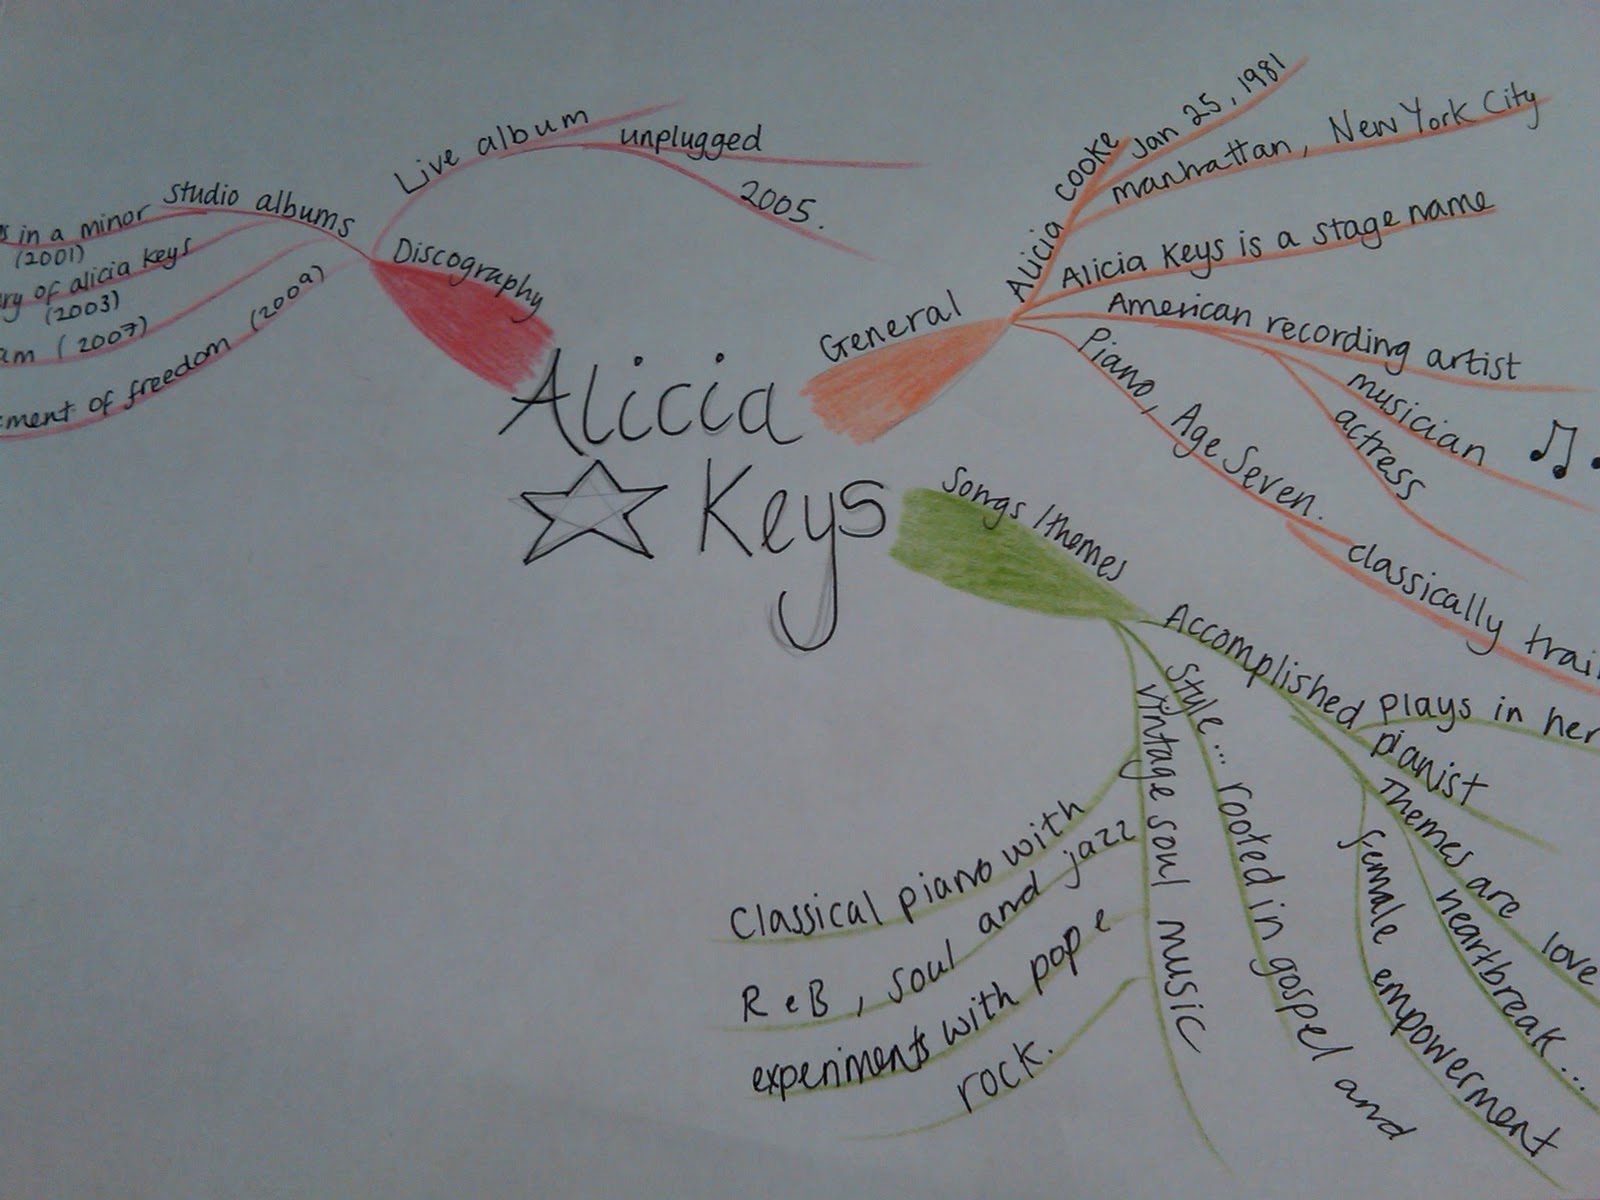 Alicia
Keys
Discography
Live album
unplugged
2005.
studio albums
s in a minor
(2001)
ry of alicia keys
(2003)
am (2007)
ment of freedom (2009)
General
Alicia cooke
Jan 25, 1981
manhattan, New York City
Alicia Keys is a stage name
American recording artist
musician
actress
Piano, Age Seven.
classically trai
Songs/themes
Accomplished
pianist
plays in her
Themes are love
heartbreak...
female empowerment
Style... rooted in gospel and
vintage soul music
Classical piano with
R&B, soul and jazz
experiments with pop &
rock.